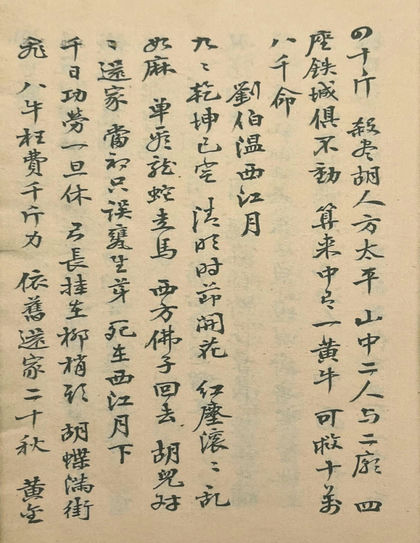 四十斤 殺尽胡人方太平 山中二人与二龐 四
座鉄城俱不動 算来中弓一黄牛 可救十万
八千命
劉伯温西江月
九〻乾坤已定 清明时節開花 红塵滚〻乱
如麻 单龍蛇走馬 西方佛子回去 胡兒
〻還家 當初只误甕生芽 死在西江月下
千日功勞一旦休 弓長挂在柳梢头 胡蝶满街
飛 八牛枉费千斤力 依舊還家二十秋 黄金